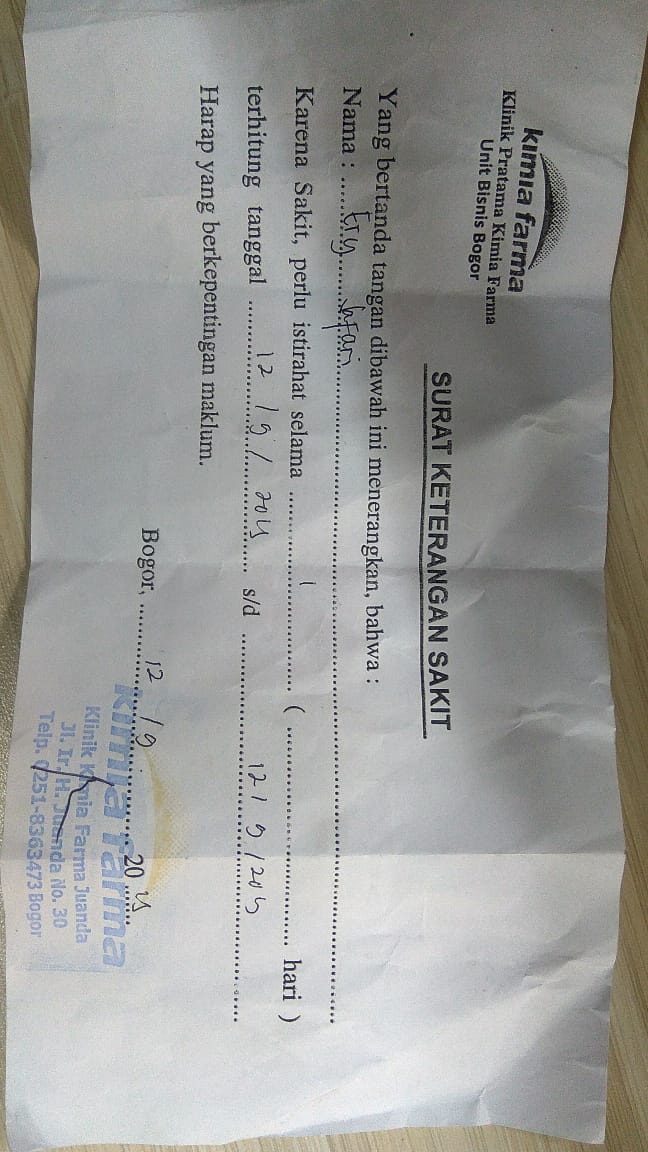 kimia farma
Klinik Pratama Kimia Farma
Unit Bisnis Bogor
SURAT KETERANGAN SAKIT
Yang bertanda tangan dibawah ini menerangkan, bahwa :
Nama :
Karena Sakit, perlu istirahat selama 1 ( hari )
terhitung tanggal 12 / 9 / s/d 12 / 9 /
Harap yang berkepentingan maklum.
Bogor, 12 / 9 20
kimia farma
Klinik Kimia Farma Juanda
Jl. Ir. H. Juanda No. 30
Telp. 0251-8363473 Bogor